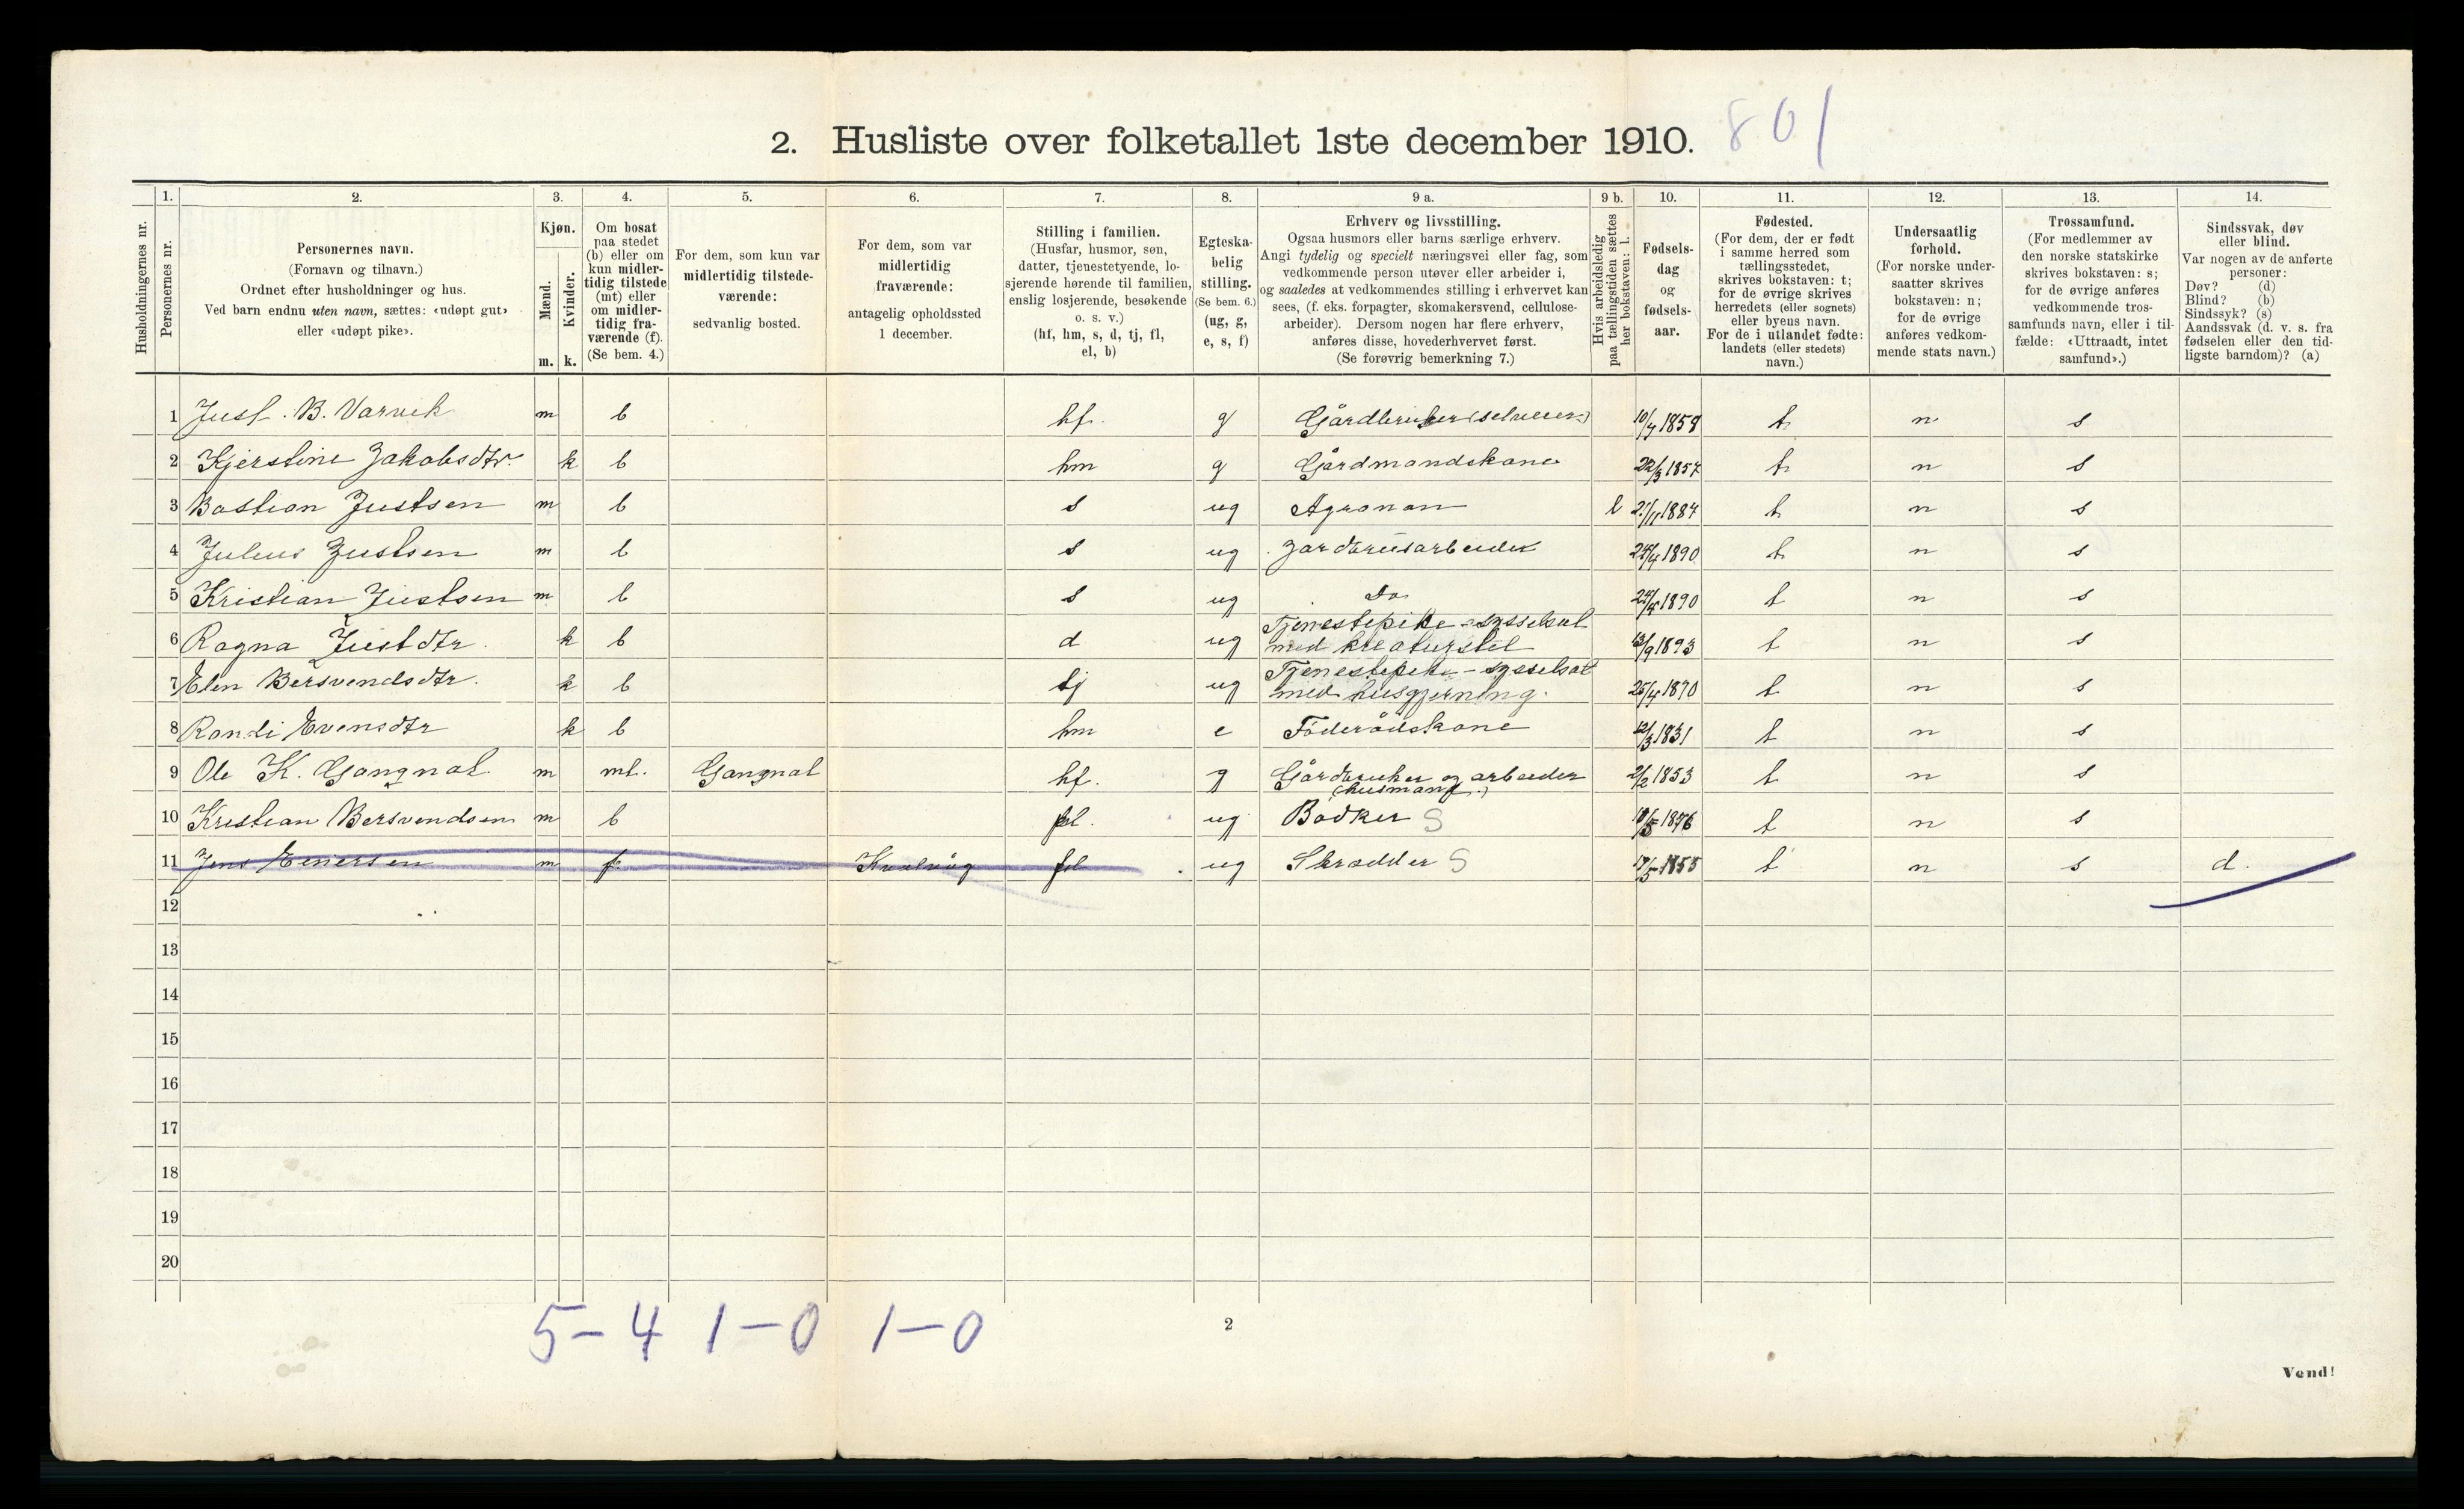 2. Husliste over folketallet 1ste december 1910. 801
Husholdningernes nr.
1. Personernes nr.
2. Personernes navn.
(Fornavn og tilnavn.)
Ordnet efter husholdninger og hus.
Ved barn endnu uten navn, sættes: «udøpt gut»
eller «udøpt pike».
3. Kjøn.
Mænd. m.
Kvinder. k.
4. Om bosat
paa stedet
(b) eller om
kun midler-
tidig tilstede
(mt) eller
om midler-
tidig fra-
værende (f).
(Se bem. 4.)
5. For dem, som kun var
midlertidig tilstede-
værende:
sedvanlig bosted.
6. For dem, som var
midlertidig
fraværende:
antagelig opholdssted
1 december.
7. Stilling i familien.
(Husfar, husmor, søn,
datter, tjenestetyende, lo-
sjerende hørende til familien,
enslig losjerende, besøkende
o. s. v.)
(hf, hm, s, d, tj, fl,
el, b)
8. Egteska-
belig
stilling.
(Se bem. 6.)
(ug, g,
e, s, f)
9 a. Erhverv og livsstilling.
Ogsaa husmors eller barns særlige erhverv.
Angi tydelig og specielt næringsvei eller fag, som
vedkommende person utøver eller arbeider i,
og saaledes at vedkommendes stilling i erhvervet kan
sees, (f. eks. forpagter, skomakersvend, cellulose-
arbeider). Dersom nogen har flere erhverv,
anføres disse, hovederhvervet først.
(Se forøvrig bemerkning 7.)
9 b. Hvis arbeidsledig
paa tællingstiden sættes
her bokstaven: l.
10. Fødsels-
dag
og
fødsels-
aar.
11. Fødested.
(For dem, der er født
i samme herred som
tællingsstedet,
skrives bokstaven: t;
for de øvrige skrives
herredets (eller sognets)
eller byens navn.
For de i utlandet fødte:
landets (eller stedets)
navn.)
12. Undersaatlig
forhold.
(For norske under-
saatter skrives
bokstaven: n;
for de øvrige
anføres vedkom-
mende stats navn.)
13. Trossamfund.
(For medlemmer av
den norske statskirke
skrives bokstaven: s;
for de øvrige anføres
vedkommende tros-
samfunds navn, eller i til-
fælde: «Uttraadt, intet
samfund».)
14. Sindssvak, døv
eller blind.
Var nogen av de anførte
personer:
Døv? (d)
Blind? (b)
Sindssyk? (s)
Aandssvak (d. v. s. fra
fødselen eller den tid-
ligste barndom)? (a)
1 Just. B. Varvik m b hf. g Gårdbruker (selveier) 10/7 1858 t n s
2 Kjerstine Jakobsdtr. k b hm g Gårdmandskone 22/3 1857 t n s
3 Bastian Justsen m b s ug Agronom l 27/11 1887 t n s
4 Julius Justsen m b s ug Jordbrusarbeider 24/4 1890 t n s
5 Kristian Justsen m b s ug Do 24/4 1890 t n s
6 Ragna Justdtr. k b d ug Tjenestepike - sysselsat
med kreaturstel 13/9 1893 t n s
7 Elen Bersvendsdtr. k b tj ug Tjenestepike - sysselsat
med husgjerning. 25/4 1870 t n s
8 Randi Evensdtr k b hm e Föderådskone 12/3 1831 t n s
9 Ole K. Gangnat m mt. Gangnat hf. g Gårdbruker og arbeider
(husmand.) 2/2 1853 t n s
10 Kristian Bersvendsen m b fl. ug Bödker S 18/5 1876 t n s
11 Jens Einersen m f. Kvalvåg fl ug Skrædder S 17/5 1855 t n s d.
12
13
14
15
16
17
18
19
20
5-4 1-0 1-0
2
Vend!